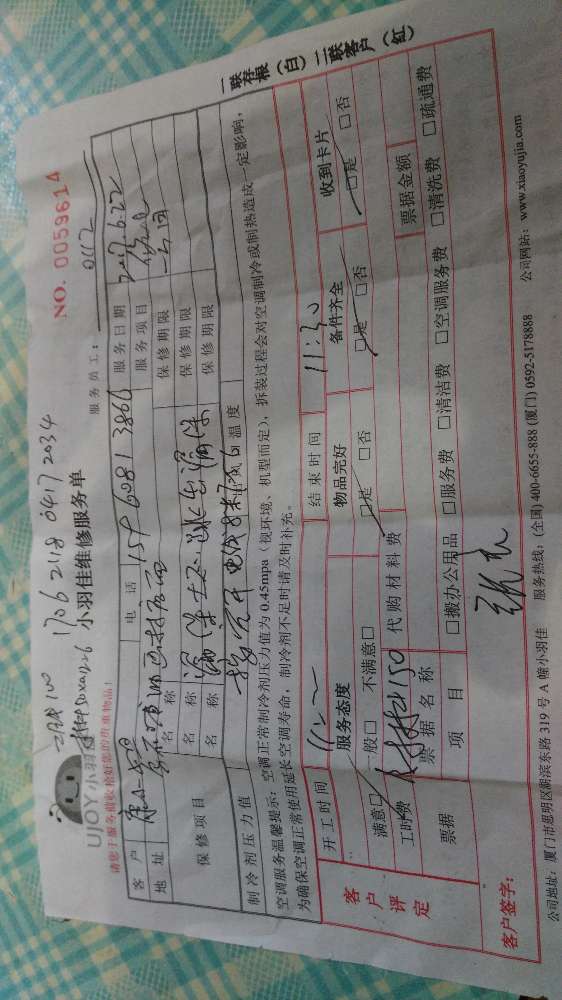 NO. 0059614
一联存根（白） 二联客户（红）
1706 2118 0417 2034
UJOY 小羽佳
小羽佳维修服务单
服务员工： 0112
请您于服务前收拾好您的贵重物品！
客户 电话 159 6081 3866 服务日期 2017.6.22
地址 服务项目
保修项目 名称 保修期限
名称 保修期限
名称 保修期限
制冷剂压力值 出风口温度
空调服务温馨提示：空调正常制冷剂压力值为 0.45mpa（视环境、机型而定），拆装过程会对空调制冷或制热造成一定影响，
为确保空调正常使用延长空调寿命，制冷剂不足时请及时补充。
客户评定
开工时间 结束时间 11:30
服务态度 物品完好 备件齐全 收到卡片
满意□ 一般□ 不满意□ □是 □否 □是 □否 □是 □否
工时费 代购材料费
票据 票据名称 票据金额
项目 □搬办公用品 □服务费 □清洁费 □空调服务费 □清洗费 □疏通费
客户签字：
公司地址：厦门市思明区湖滨东路 319 号 A 幢小羽佳 服务热线：（全国）400-6655-888（厦门）0592-5178888 公司网站：www.xiaoyujia.com